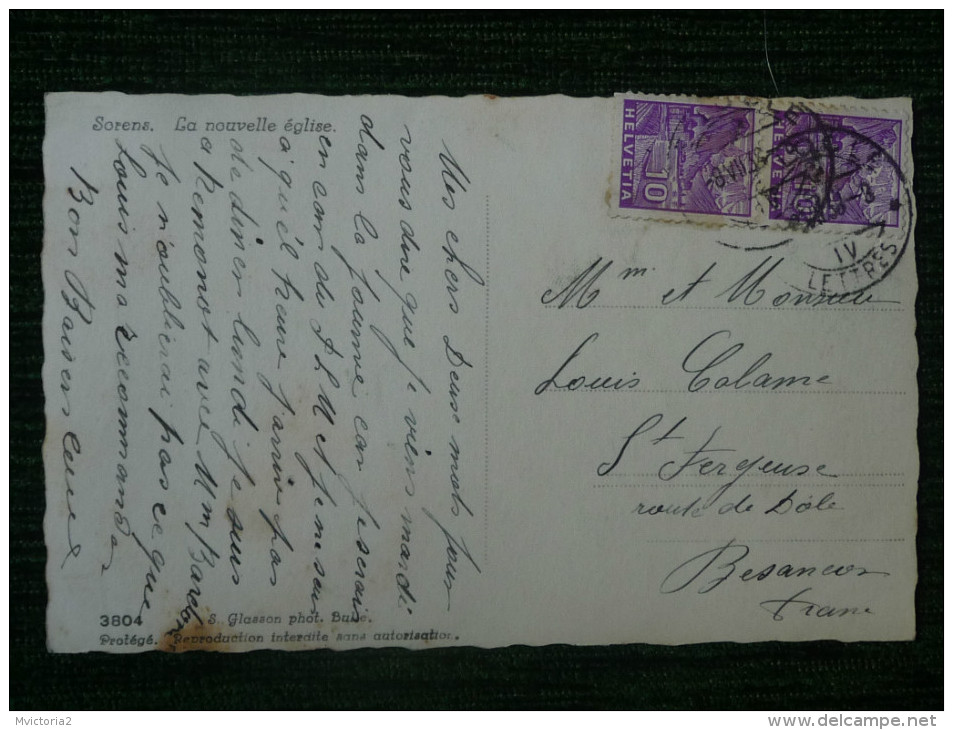 Sorens. La nouvelle église.
Mes chers Deux mots pour
vous dire que je viens mardi
dans la journée car je serais
encore du et je ne sais
à quel heure j'arrive pas
de diner lundi je suis
a Remonot avec Mm Bardo
Je n'oublierai pas ce que
Louis ma recommander
Bons Baisers
3804 S. Glasson phot. Bulle.
Protégé. Reproduction interdite sans autorisation.
HELVETIA
10
HELVETIA
10
IV
LETTRES
Mm et Monsieur
Louis Calame
St Fergeuse
route de Dôle
Besancon
france
Mvictoria2
http://www.delcampe.net